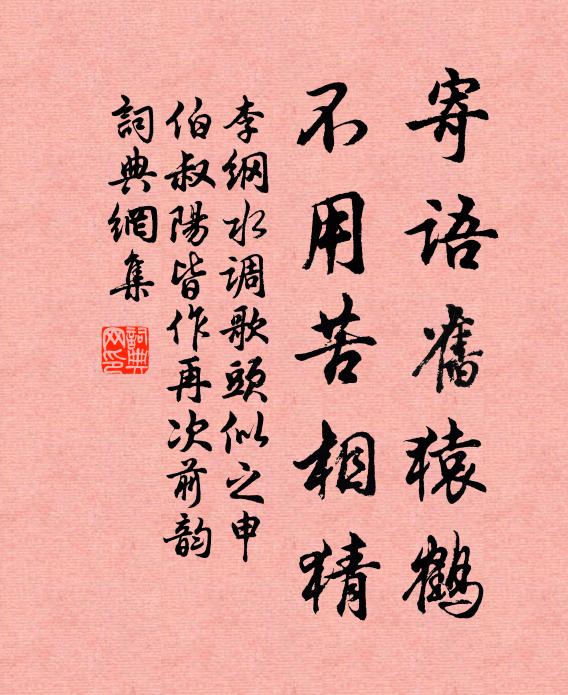 寄語舊猿鶴
不用苦相猜
李纲水調歌頭似之申
伯叔陽皆作再次前韵
詞典網集
詞典网印